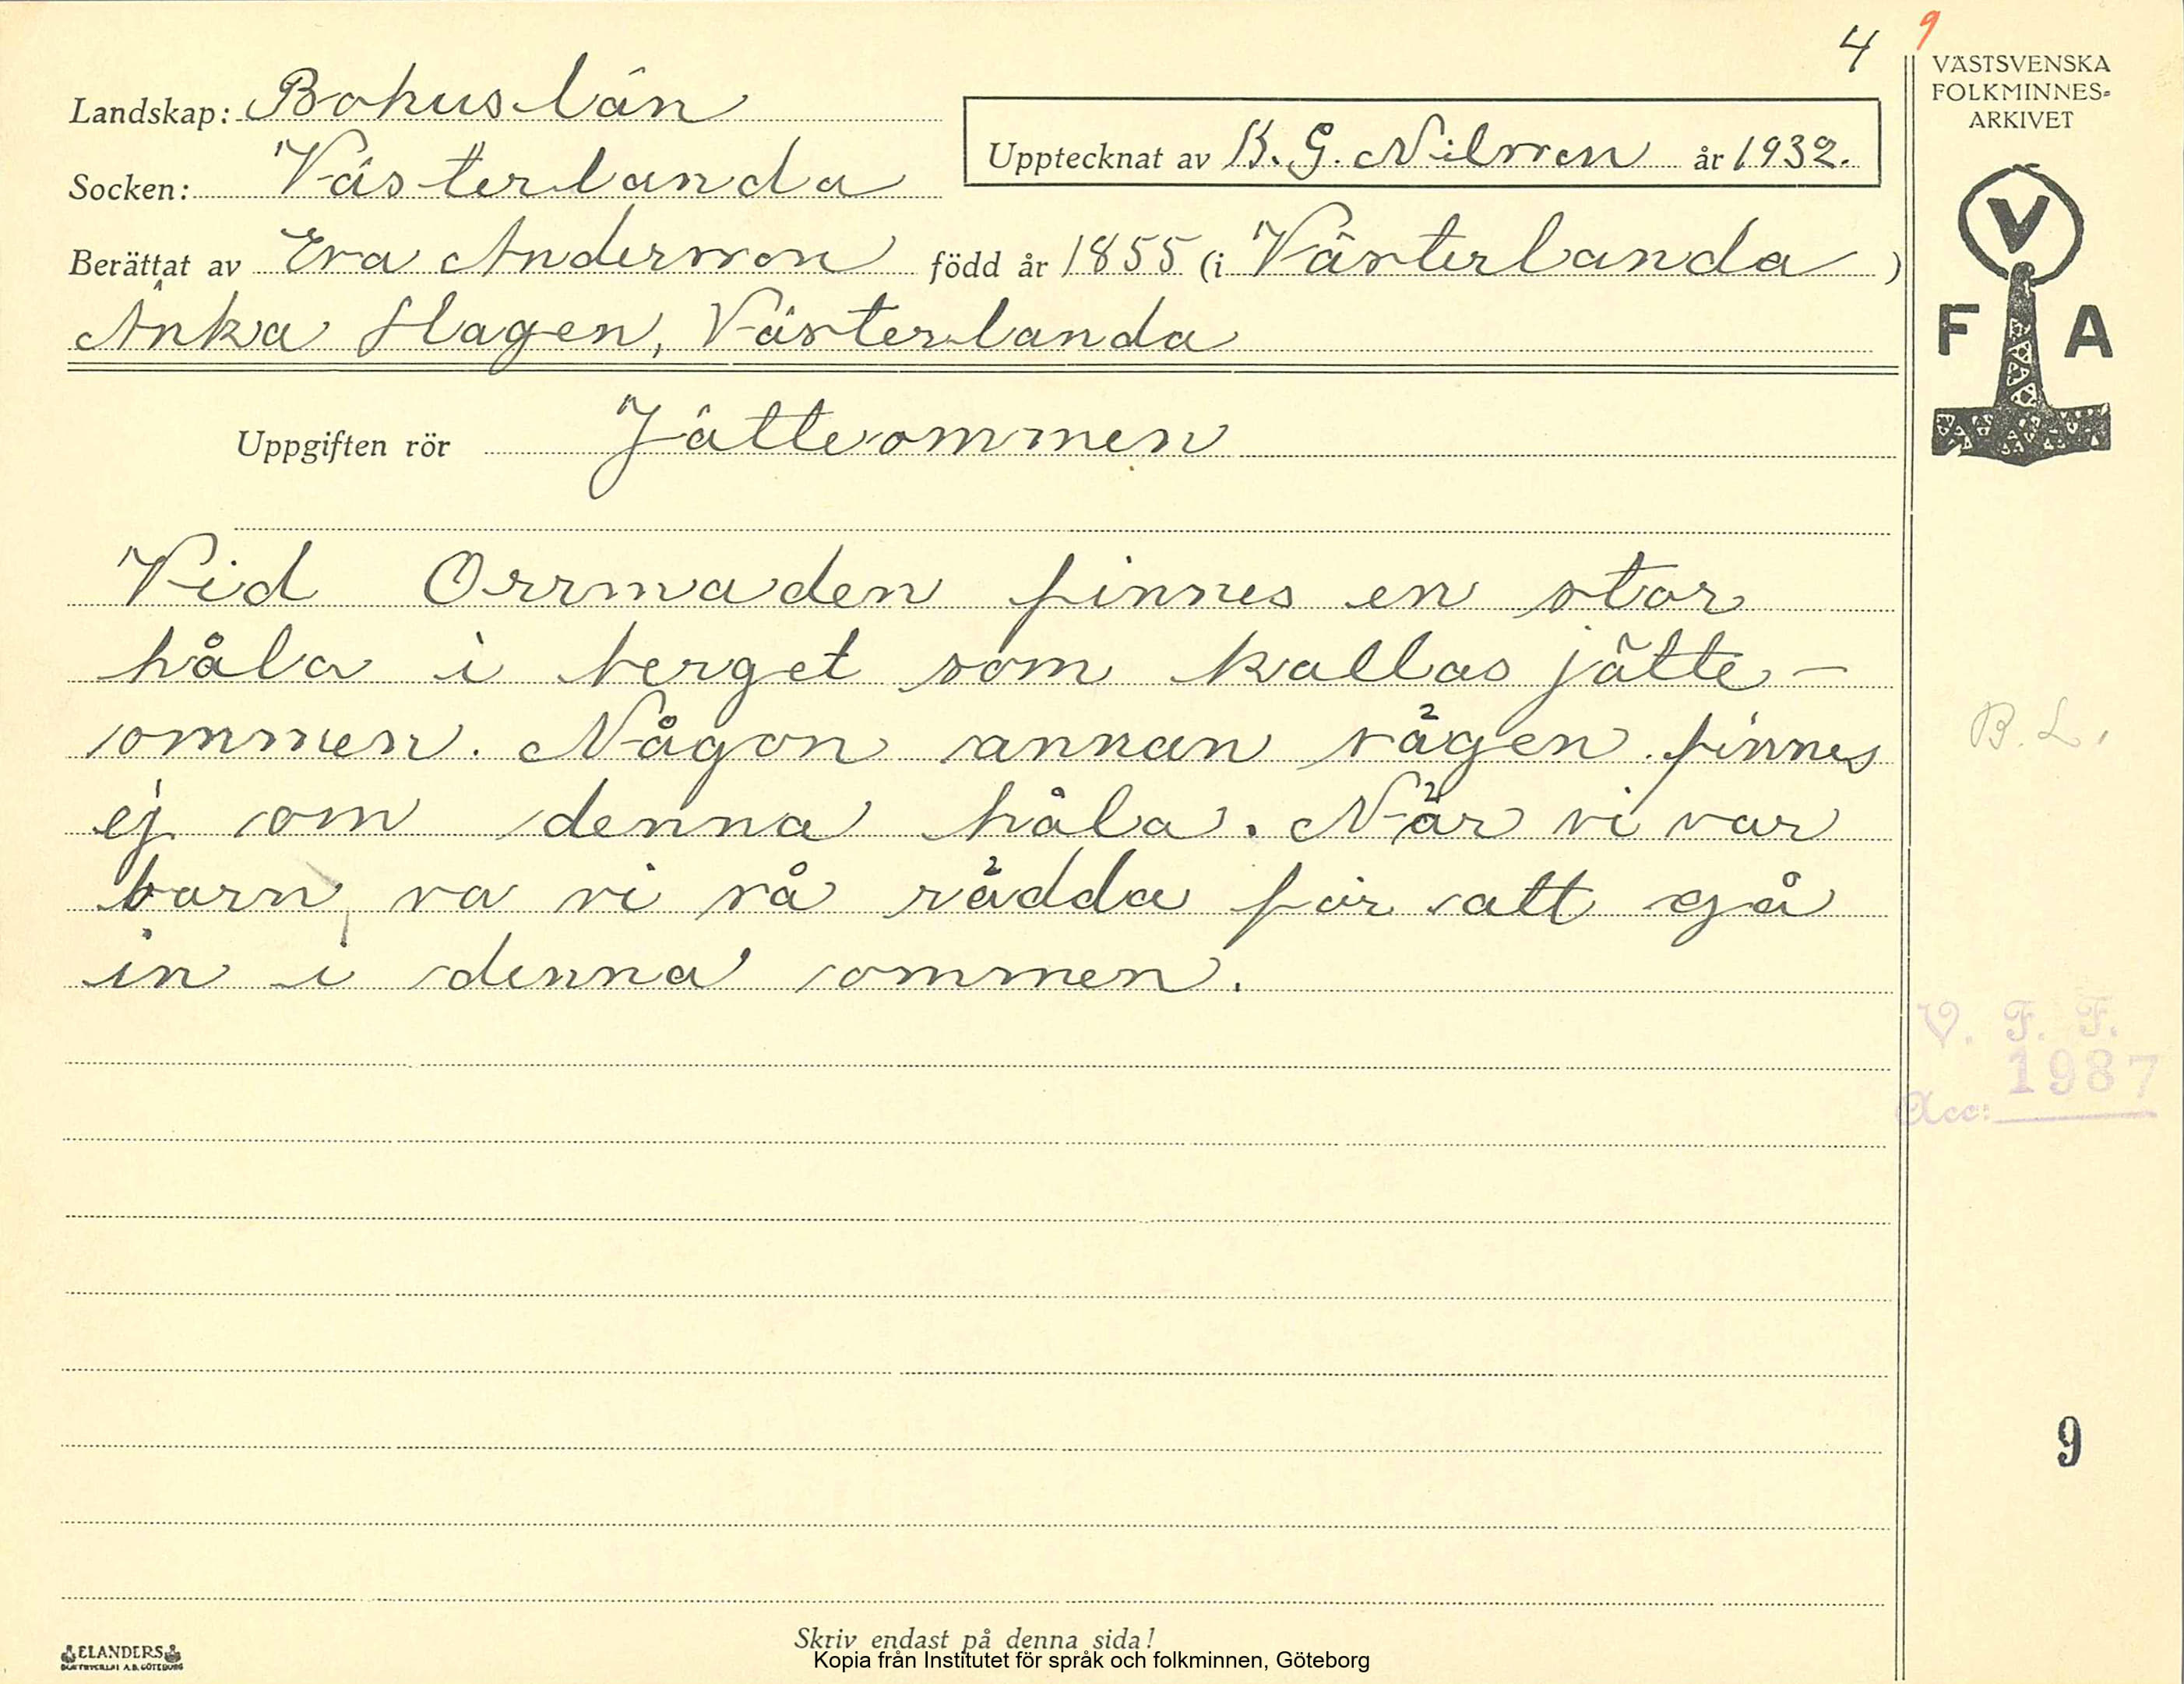 4 9
VÄSTSVENSKA
FOLKMINNES-
ARKIVET
Landskap: Bohuslän
Upptecknat av K. G. Nilsson år 1932.
Socken: Västerlanda
Berättat av Eva Andersson född år 1855 (i Västerlanda)
Änka Hagen, Västerlanda
V
F A
Uppgiften rör Jätteommen
Vid Orrmaden finnes en stor
håla i berget som kallas jätte-
ommen. Någon annan sägen finnes
ej om denna håla. När vi var
barn, va vi så rädda för att gå
in i denna ommen.
B. L.
V. F. F.
1987
Acc:
9
ELANDERS
BOKTRYCKERI A.B. GÖTEBORG
Skriv endast på denna sida!
Kopia från Institutet för språk och folkminnen, Göteborg